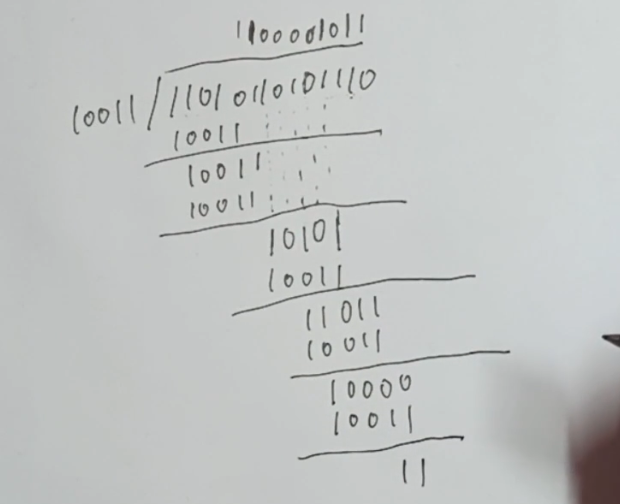 1100001011
10011 / 11010110101110
10011
10011
10011
10101
10011
11011
10011
10000
10011
11